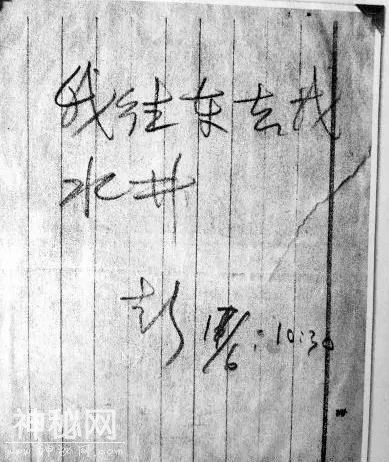 我往东去找
水井
彭 17/6:10:30
神秘网